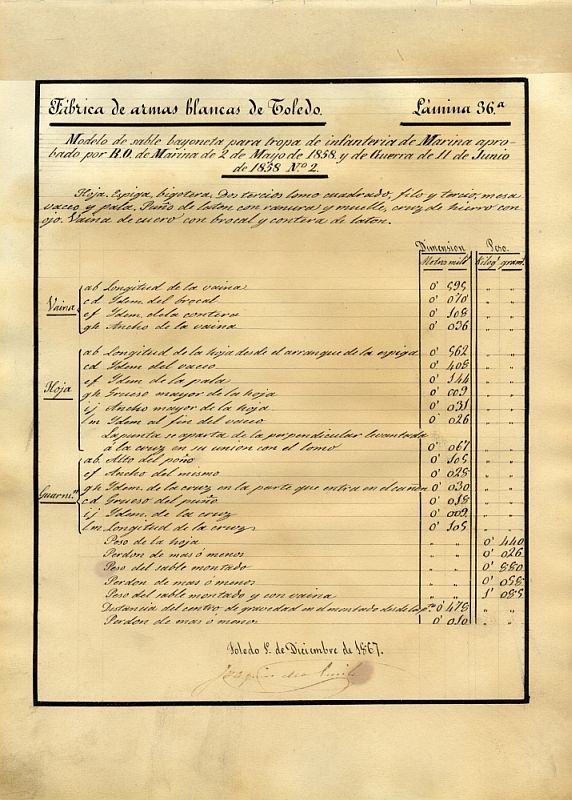 Fábrica de armas blancas de Toledo. Lámina 36.ª
Modelo de sable bayoneta para tropa de infanteria de Marina apro-
bado por R.O. de Marina de 2 de Mayo de 1858. y de Guerra de 11 de Junio
de 1858 Nº 2.
Hoja. Espiga, bigotera, Dos tercios lomo cuadrado, filo y tercio, mesa
vaceo y pala. Puño de laton con ranura y muelle, cruz de hierro con
ojo. Vaina de cuero con brocal y contera de laton.
Dimension Peso.
Metros mil.s Kilog.s gram.s
Vaina
ab Longitud de la vaina 0' 595 " "
cd Ydem del brocal 0' 070 " "
ef Ydem de la contera 0' 108 " "
gh Ancho de la vaina 0' 036 " "
Hoja
ab Longitud de la hoja desde el arranque de la espiga 0' 562 " "
cd Ydem del vaceo 0' 408 " "
ef Ydem de la pala 0' 144 " "
gh Grueso mayor de la hoja 0' 009 " "
ij Ancho mayor de la hoja 0' 031 " "
lm Ydem al fin del vaceo 0' 026 " "
La punta se aparta de la perpendicular levantada
á la cruz en su union con el lomo 0' 067 " "
Guarni.n
ab Alto del puño 0' 105 " "
ef Ancho del mismo 0' 028 " "
gh Ydem. de la cruz en la parte que entra en el cañon 0' 030 " "
cd Grueso del puño 0' 018 " "
ij Ydem. de la cruz 0' 009 " "
lm Longitud de la cruz 0' 105 " "
Peso de la hoja " " 0' 440
Perdon de mas ó menos " " 0' 026
Peso del sable montado " " 0' 880
Perdon de mas ó menos " " 0' 058
Peso del sable montado y con vaina " " 1' 085
Distancia del centro de gravedad en el montado desde la 0' 478 " "
Perdon de mas o menos 0' 010 " "
Toledo 1º de Diciembre de 1867.